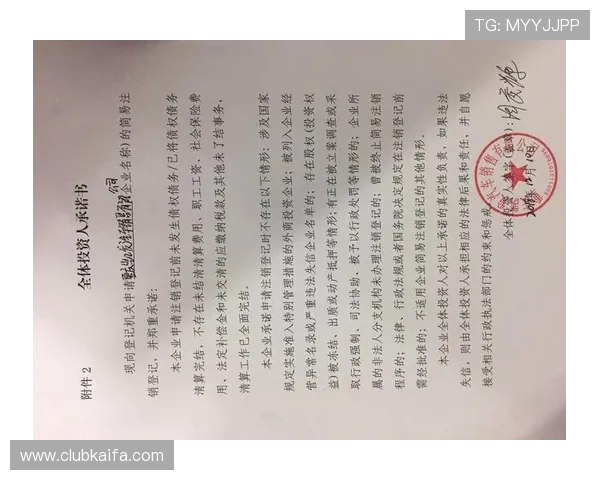 TG: MYYJJPP
附件 2
全体投资人承诺书
现向登记机关申请(企业名称)的简易注
公司
销登记，并郑重承诺：
本企业申请注销登记前未发生债权债务/已将债权债务
清算完结，不存在未结清清算费用、职工工资、社会保险费
用、法定补偿金和未交清的应缴纳税款及其他未了结事务，
清算工作已全面完结。
本企业承诺申请注销登记时不存在以下情形：涉及国家
规定实施准入特别管理措施的外商投资企业；被列入企业经
营异常名录或严重违法失信企业名单的；存在股权（投资权
益）被冻结、出质或动产抵押等情形；有正在被立案调查或采
取行政强制、司法协助、被予以行政处罚等情形的；企业所
属的非法人分支机构未办理注销登记的；曾被终止简易注销
程序的；法律、行政法规或者国务院决定规定在注销登记前
需经批准的；不适用企业简易注销登记的其他情形。
本企业全体投资人对以上承诺的真实性负责，如果违法
失信，则由全体投资人承担相应的法律后果和责任，并自愿
接受相关行政执法部门的约束和惩戒。
全体投资人签字
www.clubkaifa.com